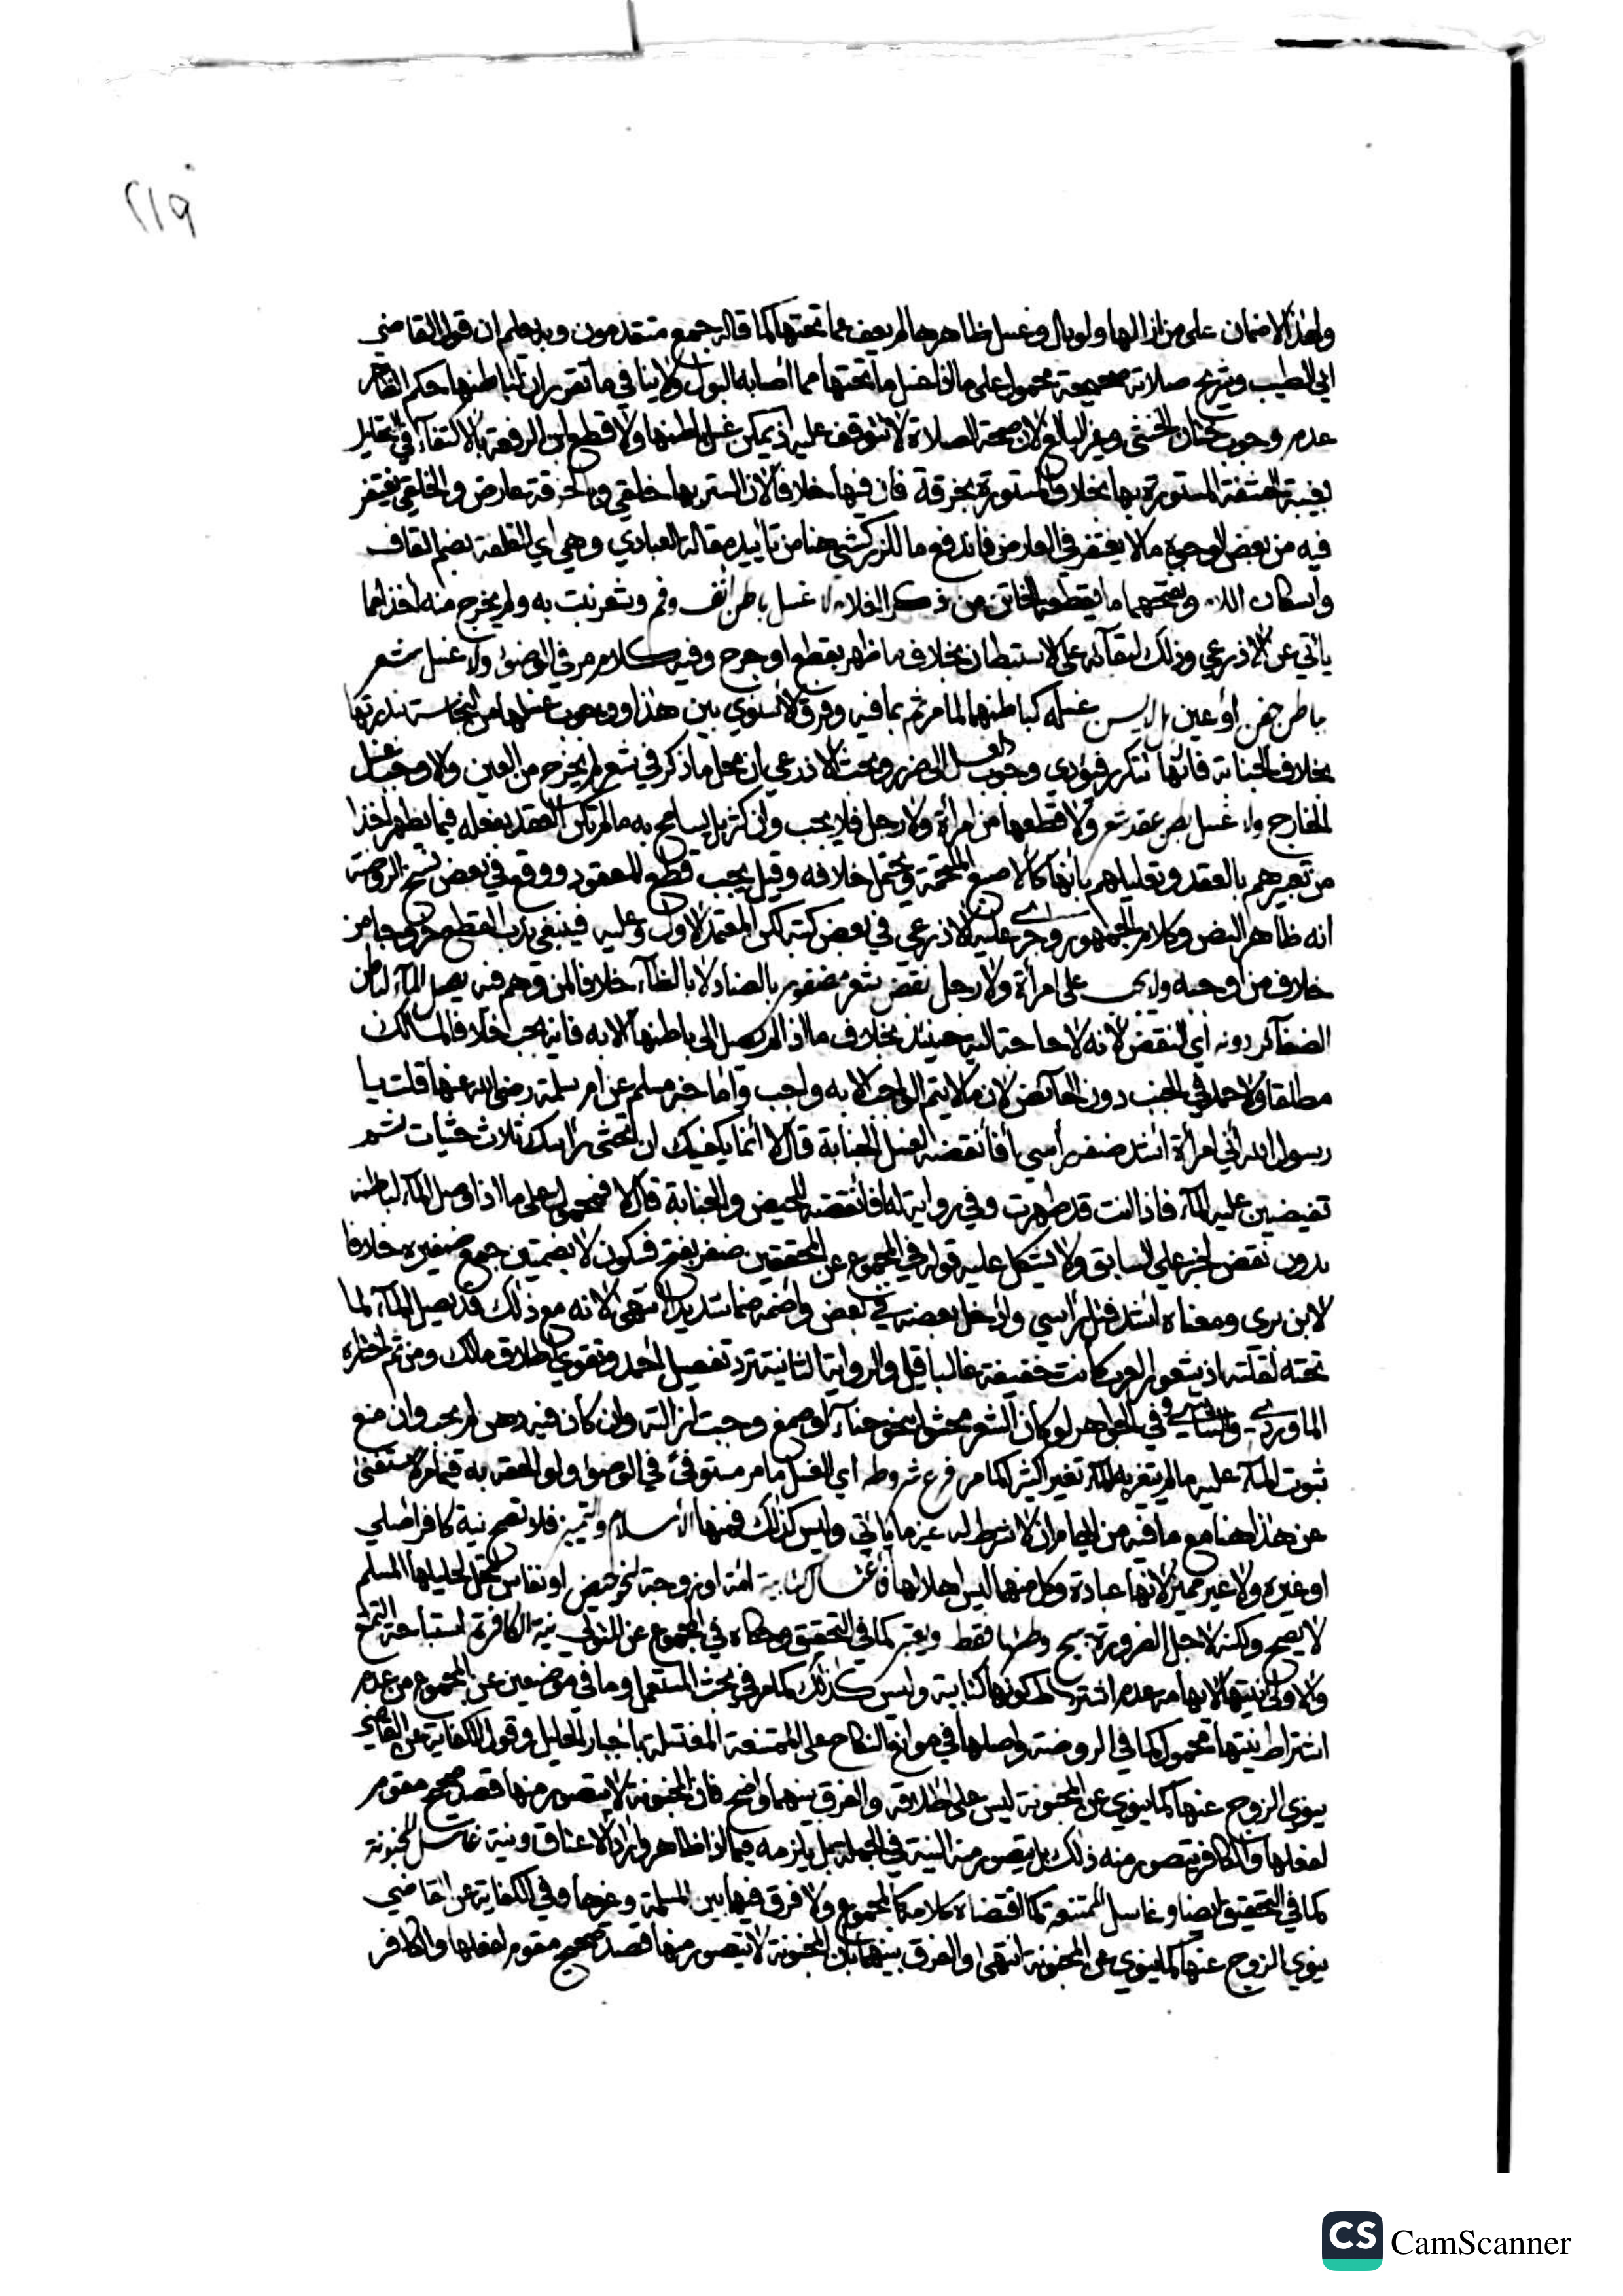 ٢١٩
ولهذا لا ضمان على من ازالها ولو بال وغسل ظاهرها لم يعف عما تحتها كما قاله جمع متقدمون وبه علم ان قول القاضي
ابي الطيب وشريح صلاته صحيحة محمول على ما اذا غسل ما تحتها مما اصابه البول ولا ينافي ما تقرر ان لباطنها حكم الظاهر
عدم وجوب ختان الخنثى وغير البالغ لان صحة الصلاة لا تتوقف عليه اذ يمكن غسل باطنها ولا قطع ابن الرفعة بالاكتفاء في التحليل
بغيبة الحشفة المستورة بها بخلاف المستورة بخرقة فان فيها خلافا لان الستر بها خلقي وبالخرقة عارض والخلقي يغتفر
فيه من بعض الوجوه ما لا يغتفر في العارض فاندفع ما للزركشي هنا من تاييد مقالة العبادي وهي اي القلفة بضم القاف
واسكان اللام وبفتحهما ما يقطعه الخاتن من ذكر الغلام لا غسل باطن انف وفم وشعر نبت به ولم يخرج منه اخذا مما
ياتي عن الاذرعي وذلك لبقائه على الاستبطان بخلاف ما ظهر بقطع او جرح وفيه كلام مر في الوضوء ولا غسل شعر
باطن جفن او عين بل لا يسن غسله كباطنها لما مر ثم بما فيه وفرق الاسنوي بين هذا ووجوب غسلها من النجاسة بندرتها
بخلاف الجنابة فانها تتكرر فيؤدي وجوب الغسل الى ضرر وبحث الاذرعي ان محل ما ذكر في شعر لم يخرج من العين والا وجب غسل
الخارج ولا غسل باطن عقد شعر ولا قطعها من امرأة ولا رجل فلا يجب وان كثر بل يسامح به ما لم تكن العقد بفعله فيما يظهر اخذا
من تعبيرهم بالعقد وتعليلهم بانها كالاصبع الملتحمة ويحتمل خلافه وقيل يجب قطع المعقود ووقع في بعض نسخ الروضة
انه ظاهر النص وكلام الجمهور وجرى عليه الاذرعي في بعض كتبه لكن المعتمد الاول وعليه فينبغي ندب القطع خروجا من
خلاف من اوجبه ولا يجب على امرأة ولا رجل نقض شعر مضفور بالضاد لا بالظاء خلافا لمن وهم فيه يصل الماء لباطن
الضفائر دونه اي النقض لانه لا حاجة اليه حينئذ بخلاف ما اذا لم يصل الى باطنها الا به فانه يجب خلافا لمالك
مطلقا ولاحمد في الجنب دون الحائض لان ما لا يتم الواجب الا به واجب واما خبر مسلم عن ام سلمة رضي الله عنها قلت يا
رسول الله اني امرأة اشد ضفر رأسي أفأنقضه لغسل الجنابة قال لا انما يكفيك ان تحثي على راسك ثلاث حثيات ثم
تفيضين عليه الماء فاذا انت قد طهرت وفي رواية له أفأنقضه للحيض والجنابة قال لا فمحمول على ما اذا وصل الماء لباطنه
بدون نقض لخبر علي السابق ولا يشكل عليه قوله في المجموع عن المحققين ضفر بفتح فسكون لا بضمتين جمع ضفيرة خلافا
لابن بري ومعناه اشد فتل رأسي وادخل بعضه في بعض واضمه ضما شديدا انتهى لانه مع ذلك قد يصل الماء لما
تحته لقلته اذ شعور العرب كانت خفيفة غالبا قيل والرواية الثانية ترد تفصيل احمد وتقوي اطلاق مالك ومن ثم اختاره
الماوردي والشاشي وفي الجواهر لو كان الشعر محشوا بنحو حناء او صمغ وجبت ازالته وان كان فيه دهن لم يجب وان منع
ثبوت الماء عليه ما لم يتغير به الماء تغيرا كثيرا كما مر فرع شروطه اي الغسل ما مر مستوفى في الوضوء ولو الحقه به فيما مر لاستغنى
عن هذا هنا مع ما فيه من ايهام ان لا شرط له غير ما ياتي وليس كذلك فمنها الاسلام وتمييز فلا تصح نية كافر اصلي
او غيره ولا غير مميز لانها عبادة وكل منهما ليس اهلا لها واغتسال كتابية امة او زوجة لنحو حيض او نفاس لتحل لحليلها المسلم
لا يصح ولكنه لاجل الضرورة يبيح وطئها فقط ويعتبر كما في التحقيق وحكاه في المجموع عن المتولي نية الكافرة استباحة التمتع
والاولى نيتها لايهامه عدم اشتراط كونها كتابية وليس كذلك كما مر في بحث المستعمل وما في موضعين عن المجموع من عدم
اشتراط نيتها محمول كما في الروضة واصلها في موانع النكاح على الممتنعة المغتسلة باجبار الحليل وقول الكفاية عن القاضي
ينوي الزوج عنها كما ينوي عن المجنونة ليس على اطلاقه والفرق بينهما واضح فان المجنونة لا يتصور منها قصد صحيح مقوم
لفعلها والكافر يتصور منه ذلك بل يتصور منه النية في الجملة بل يلزمه فيما اذا ظاهر واراد الاعتاق ونية غاسل المجنونة
كما في التحقيق ايضا وغاسل الممتنعة كما اقتضاه كلامه كالمجموع ولا فرق فيها بين المسلمة وغيرها وفي الكفاية عن القاضي
ينوي الزوج عنها كما ينوي عن المجنونة انتهى والفرق بينهما بان المجنونة لا يتصور منها قصد صحيح مقوم لفعلها والكافر
CS CamScanner